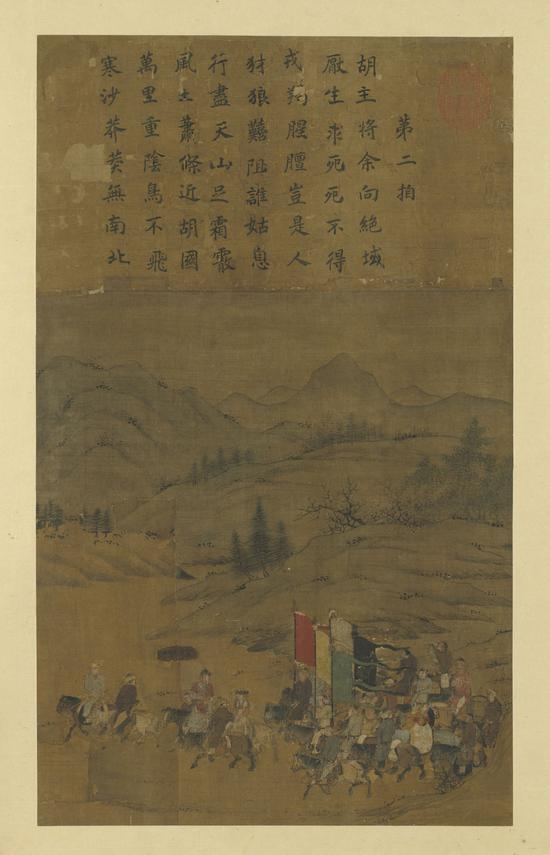 第二拍
胡主將余向絕域
厭生求死死不得
戎羯腥膻豈是人
犲狼難阻誰姑息
行盡天山足霜霰
風土蕭條近胡國
萬里重陰鳥不飛
寒沙莽莽無南北